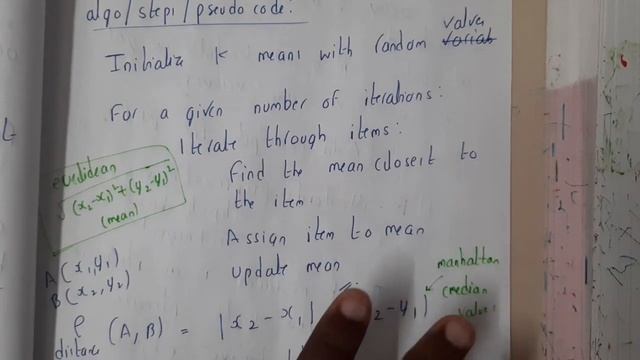 algo/steps/pseudo code:
Initialize k means with random values
For a given number of iterations:
Iterate through items:
Find the mean closest to
the item
Assign item to mean
update mean
euclidean
√(x₂-x₁)²+(y₂-y₁)²
(mean)
A(x₁,y₁)
B(x₂,y₂)
distance (A, B) = |x₂ - x₁| 2 - y₁|
manhattan
(median
value)